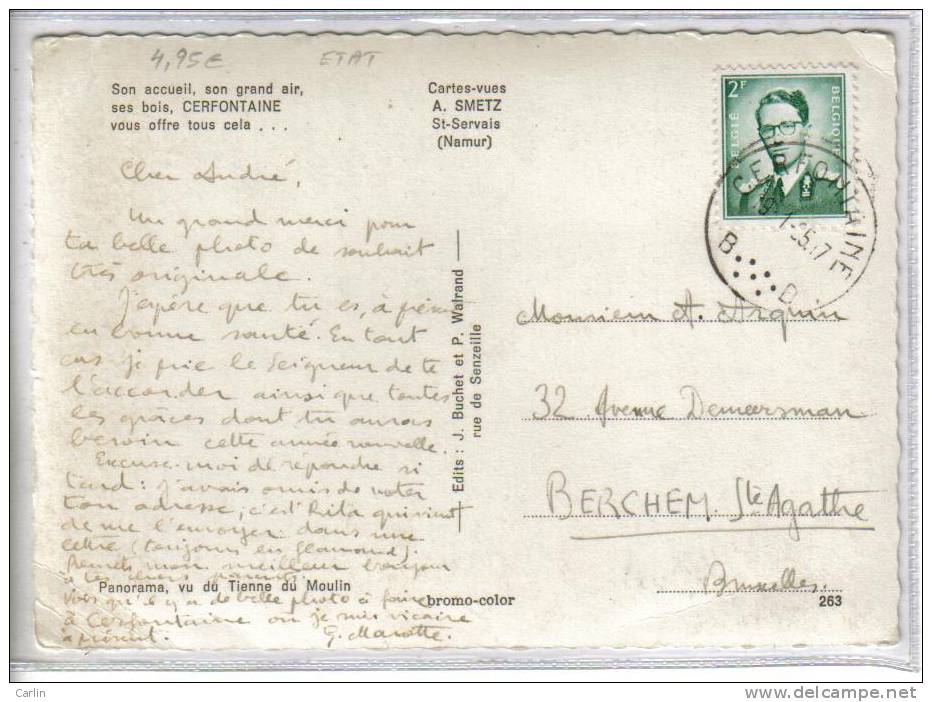 4,95€ ETAT
Son accueil, son grand air,
ses bois, CERFONTAINE
vous offre tous cela . . .
Cartes-vues
A. SMETZ
St-Servais
(Namur)
2F
BELGIË BELGIQUE
CERFONTAINE
B D
Cher André,
Un grand merci pour
ta belle photo de souhait
très originale.
J'espère que tu es, à présent
en bonne santé. En tout
cas je prie le Seigneur de te
l'accorder ainsi que toutes
les grâces dont tu auras
besoin cette année nouvelle.
Excuse-moi de répondre si
tard : j'avais omis de noter
ton adresse, c'est Rita qui vient
de me l'envoyer dans une
lettre (toujours en flamand).
Remets mon meilleur bonjour
à tes chers parents
Panorama, vu du Tienne du Moulin
vois qu'il y a de belle photo à faire
à Cerfontaine où je suis vicaire
à présent. G. Marotte.
Edits : J. Buchet et P. Walrand
rue de Senzeille
Monsieur A. Arquin
32 Avenue Demeersman
BERCHEM Ste Agathe
Bruxelles.
bromo-color
263
Carlin
http://www.delcampe.net